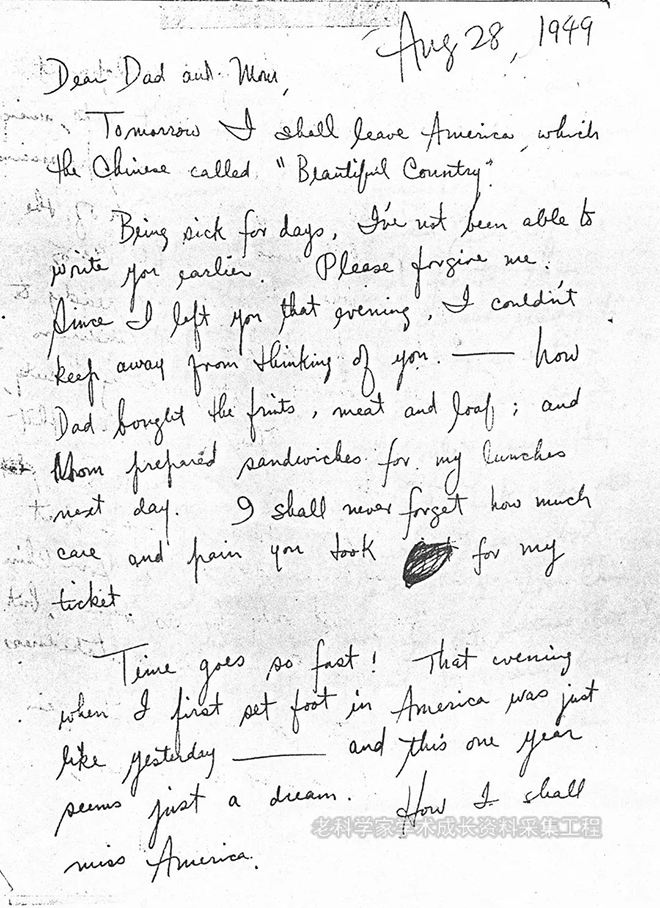 Aug 28, 1949
Dear Dad and Mom,
Tomorrow I shall leave America, which
the Chinese called "Beautiful Country".
Being sick for days, I've not been able to
write you earlier. Please forgive me.
Since I left you that evening, I couldn't
keep away from thinking of you. —— how
Dad bought the fruits, meat and loaf; and
Mom prepared sandwiches for my lunches
next day. I shall never forget how much
care and pain you took for my
ticket.
Time goes so fast! That evening
when I first set foot in America was just
like yesterday —— and this one year
seems just a dream. How I shall
老科学家学术成长资料采集工程
miss America.